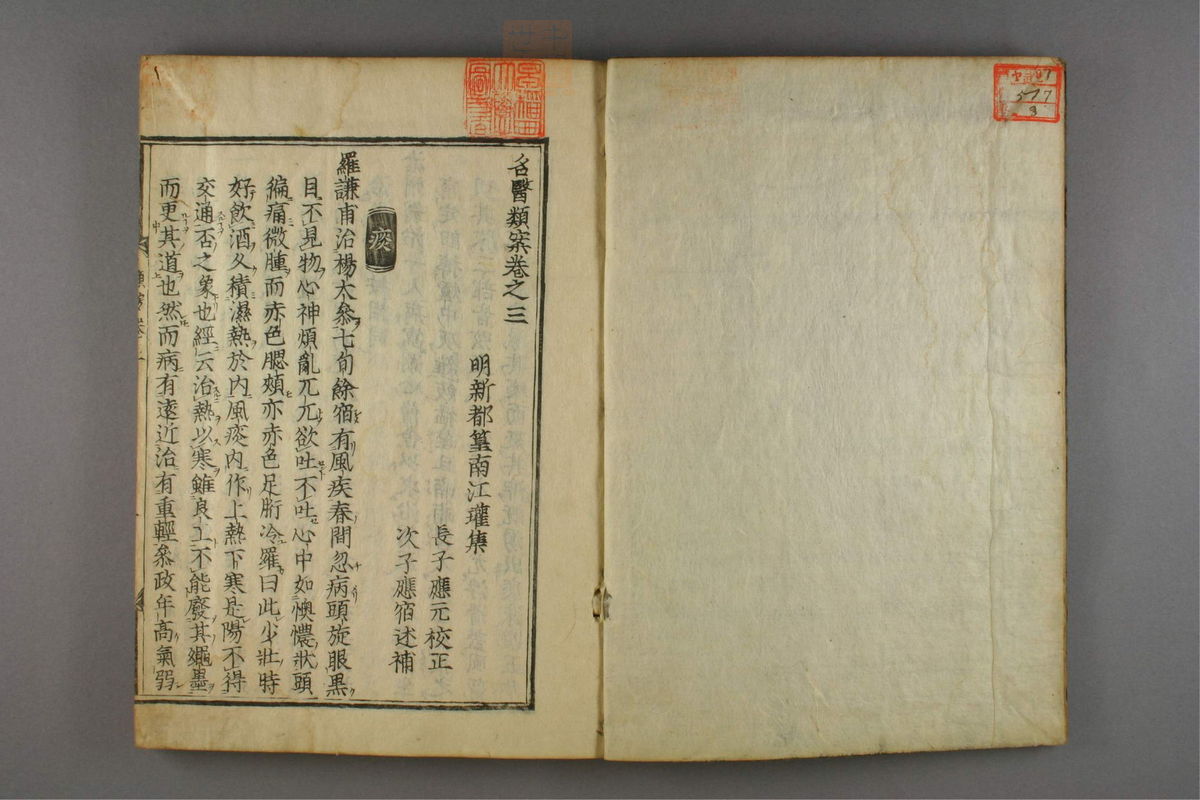 名醫類案卷之三
明新都篁南江瓘集
長子應元校正
次子應宿述補
痰
羅謙甫治楊太叅七旬餘宿有風疾春間忽病頭旋眼黑
目不見物心神煩亂兀兀欲吐不吐心中如懊憹狀頭
偏痛微腫而赤色腮頰亦赤色足胻冷羅曰此少壯時
好飲酒久積濕熱於内風痰内作上熱下寒是陽不得
交通否之象也經云治熱以寒雖良工不能廢其繩墨
而更其道也然而病有遠近治有重輕叅政年高氣弱
577
8